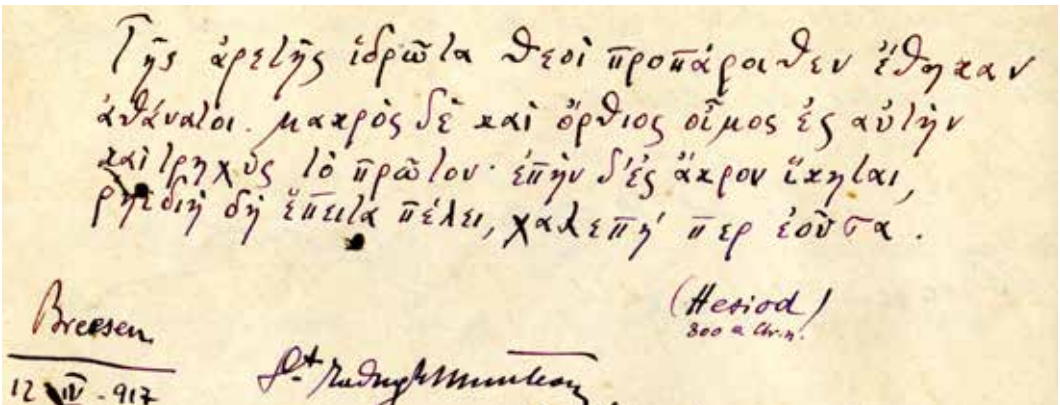 Τῆς ἀρετῆς ἱδρῶτα θεοὶ προπάροιθεν ἔθηκαν
ἀθάνατοι. μακρὸς δὲ καὶ ὄρθιος οἶμος ἐς αὐτὴν
καὶ τρηχὺς τὸ πρῶτον· ἐπὴν δ'ἐς ἄκρον ἵκηται,
ῥηιδίη δὴ ἔπειτα πέλει, χαλεπή περ ἐοῦσα.
(Hesiod)
800 a Chr.n.
Breesen
12 IV - 917